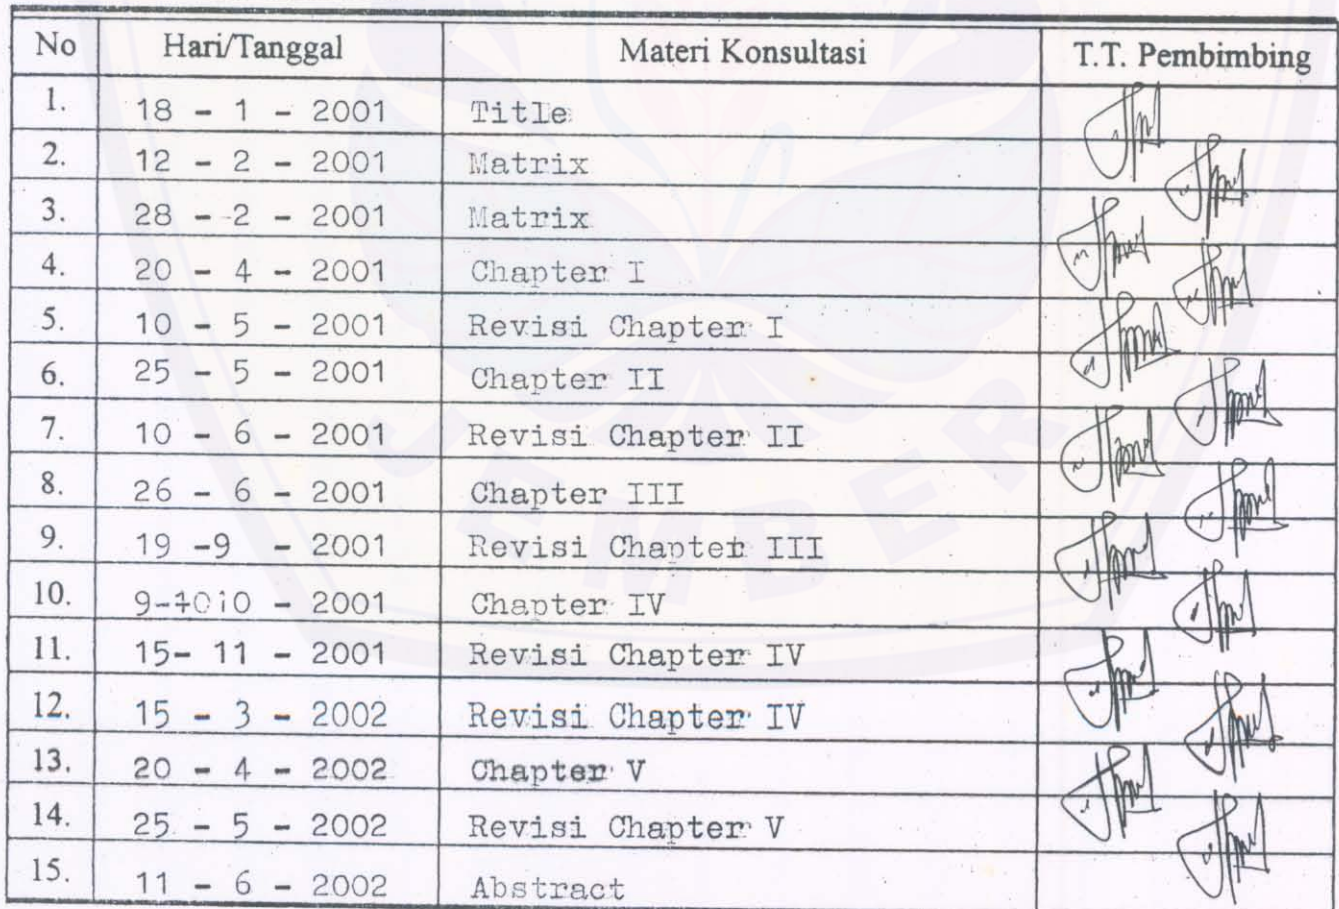 No Hari/Tanggal Materi Konsultasi T.T. Pembimbing
1. 18 - 1 - 2001 Title
2. 12 - 2 - 2001 Matrix
3. 28 - 2 - 2001 Matrix
4. 20 - 4 - 2001 Chapter I
5. 10 - 5 - 2001 Revisi Chapter I
6. 25 - 5 - 2001 Chapter II
7. 10 - 6 - 2001 Revisi Chapter II
8. 26 - 6 - 2001 Chapter III
9. 19 -9 - 2001 Revisi Chapter III
10. - 2001 Chapter IV
11. 15- 11 - 2001 Revisi Chapter IV
12. 15 - 3 - 2002 Revisi Chapter IV
13. 20 - 4 - 2002 Chapter V
14. 25 - 5 - 2002 Revisi Chapter V
15. 11 - 6 - 2002 Abstract
JEMBER